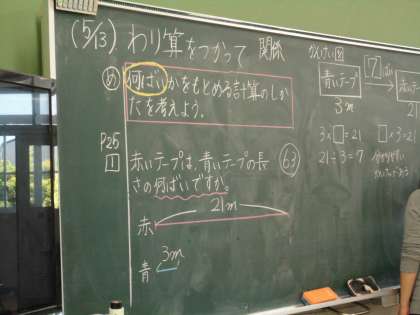 (5/13) わり算をつかって 関係
め 何ばいかをもとめる計算のし
かたを考えよう。
P25
1 赤いテープは、青いテープの長
さの何ばいですか。
63
21m
赤
3m
青
かんけい図
青いテープ
7 ばい
赤いテ
3m
21
3×□=21
□×3=21
21÷3=7